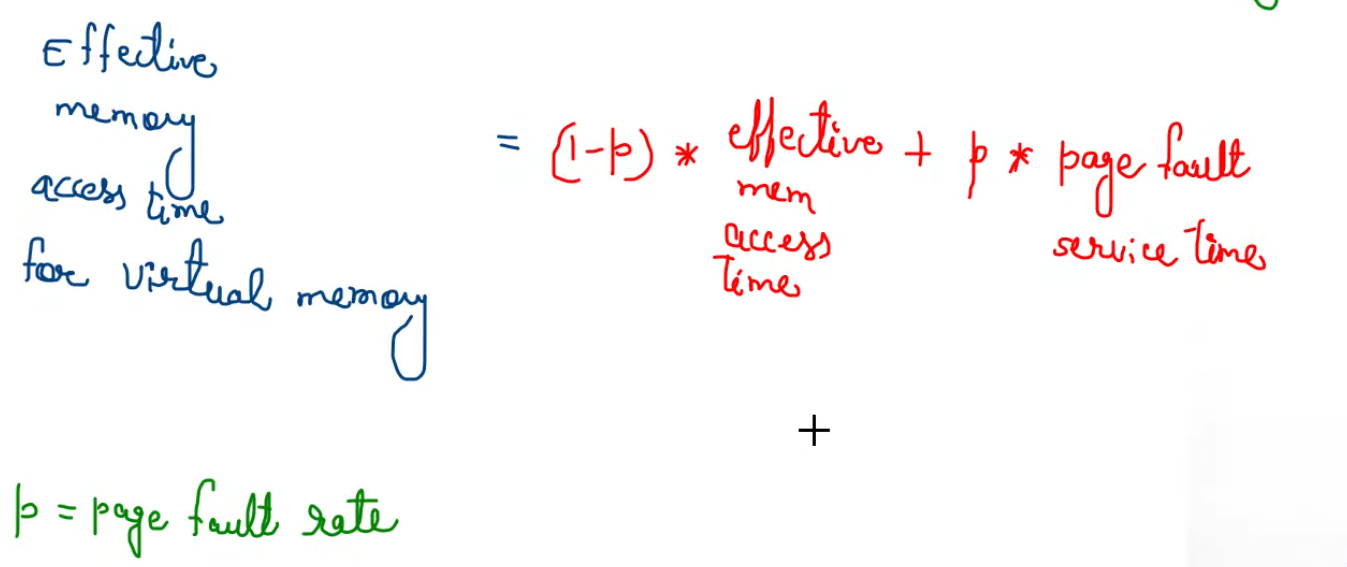 Effective
memory
access time
for virtual memory
= (1-p) * effective + p * page fault
mem
access
time
service time
p = page fault rate